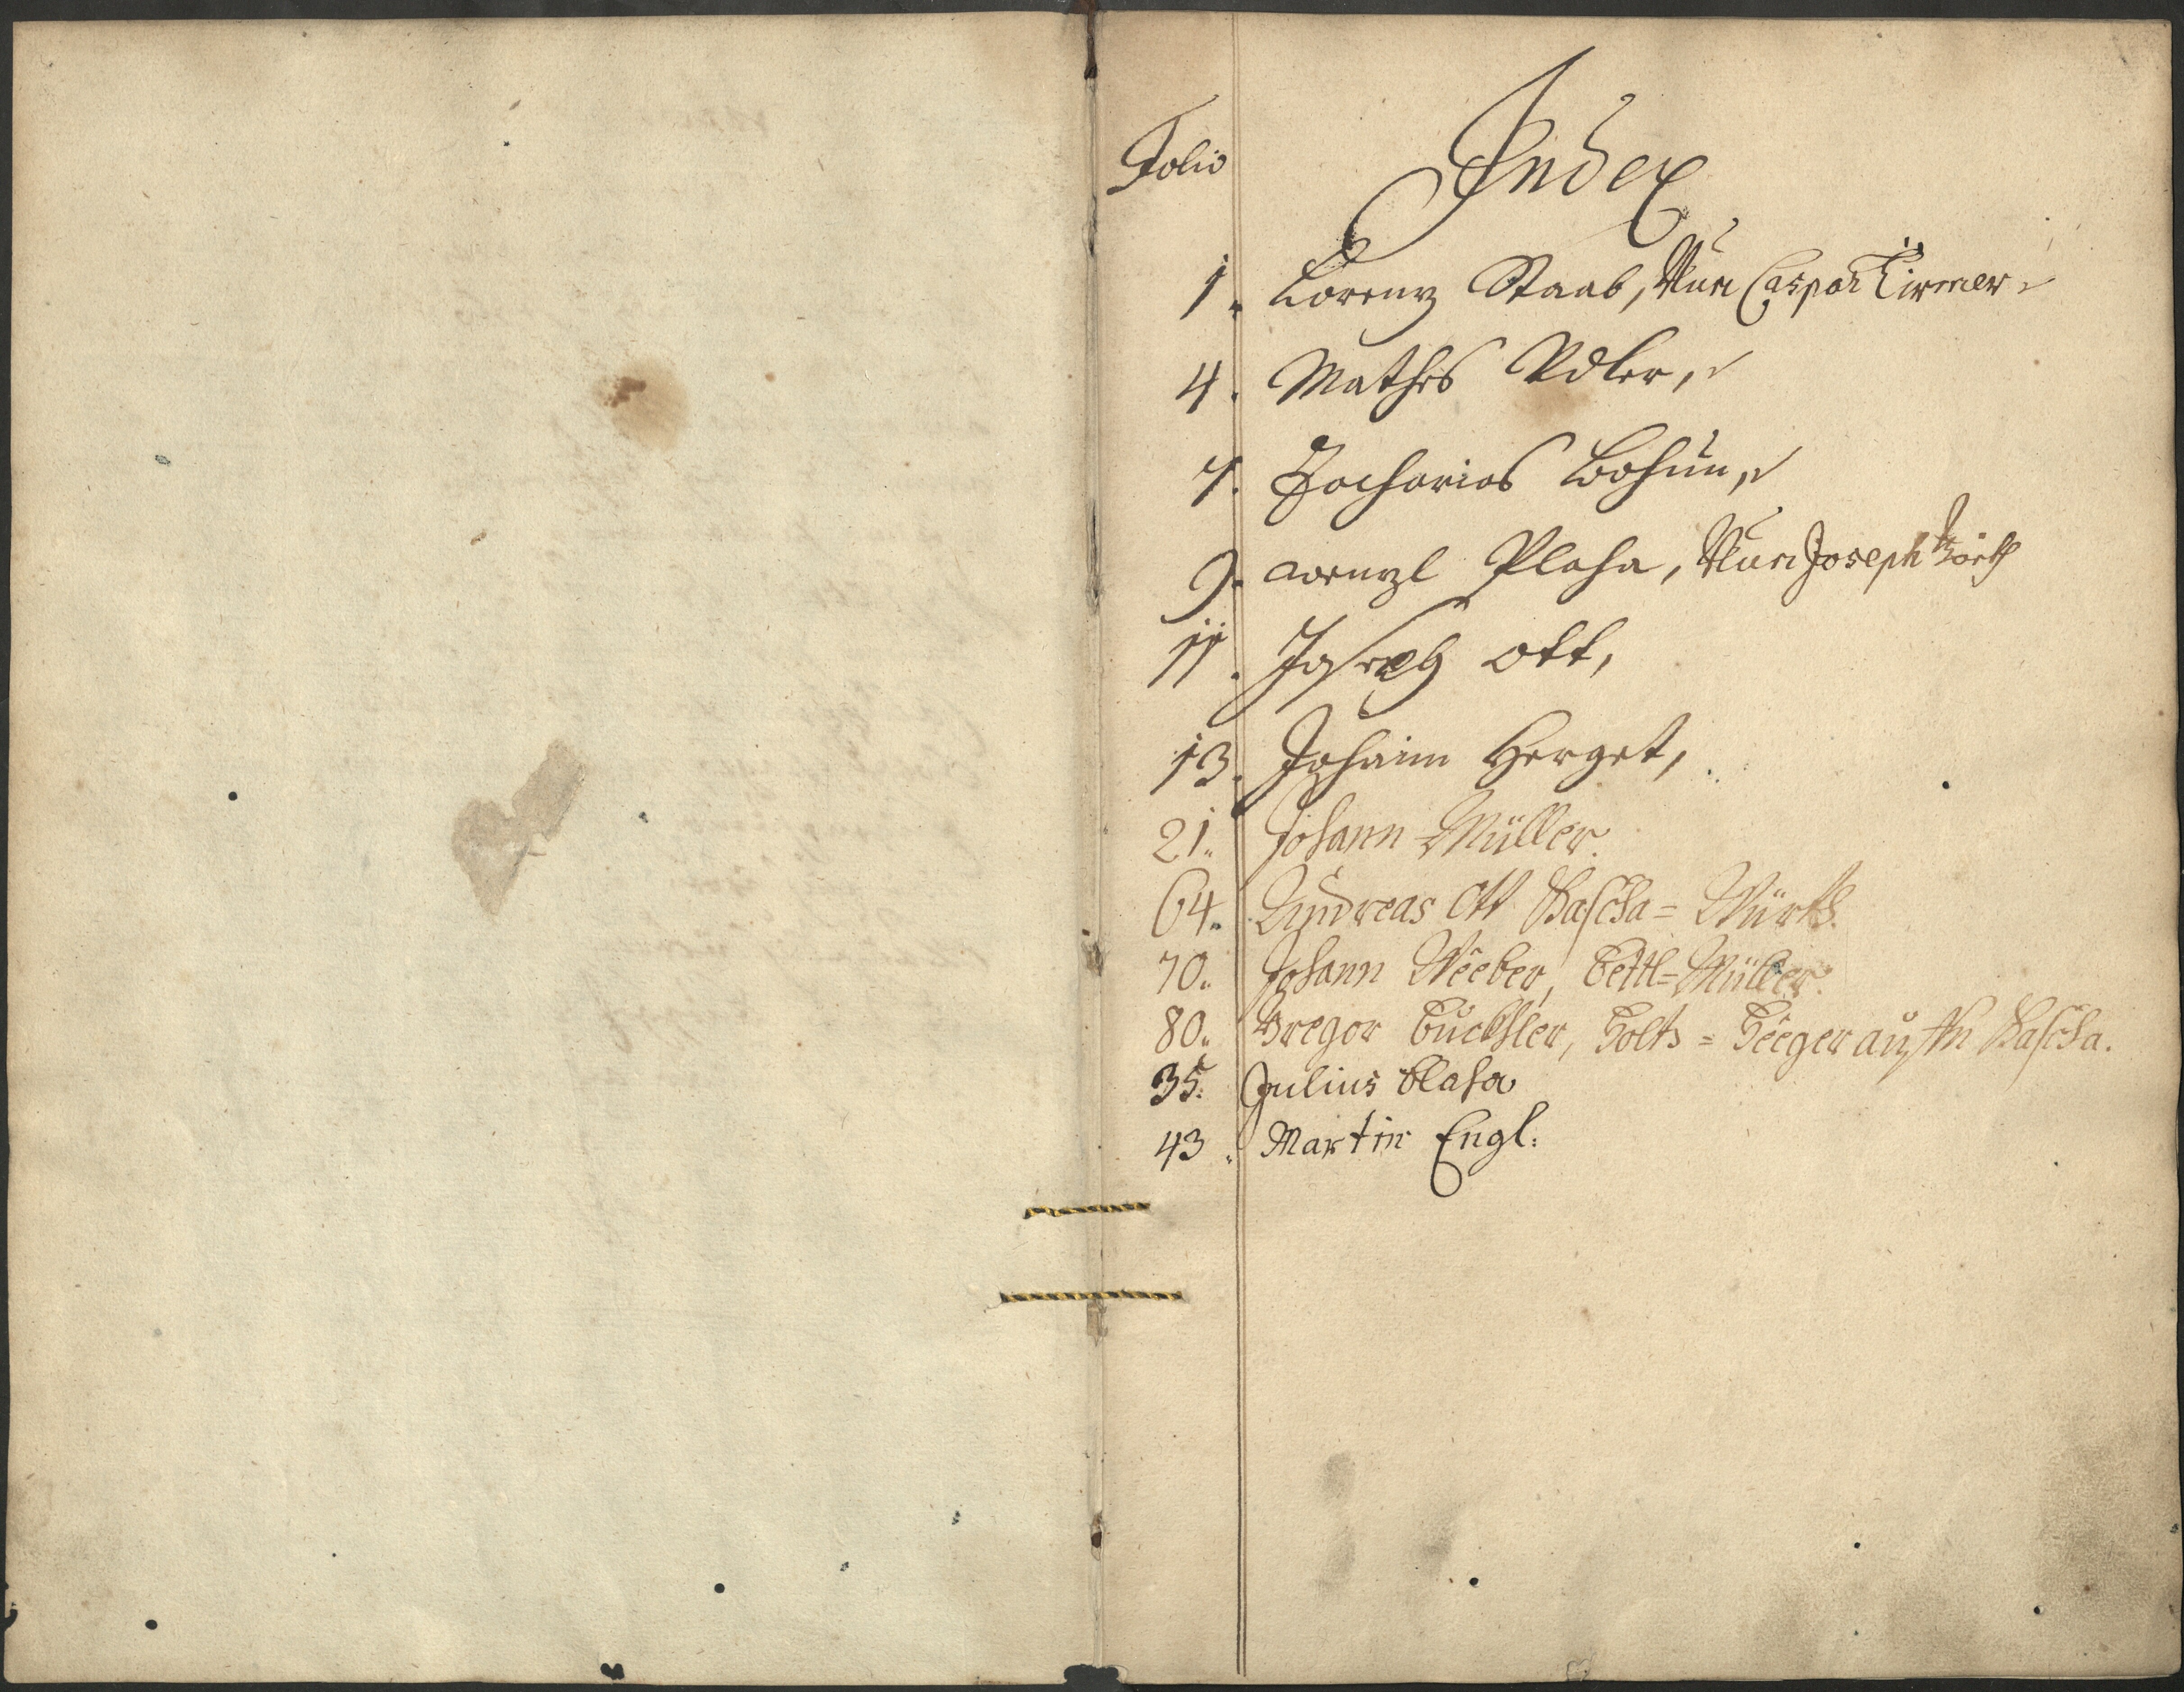 Folio
Index
1. Lorenz Staab, Nun Caspar Tirmer
4. Mathes Adler,
7. Zacharias Bohun,
9. Wenzl Plaha, Nun Joseph
11. Joseph Ott,
13. Johann Herget,
21. Johann Müller.
64. Andreas Ott Bascha = Würth.
70. Johann Weeber, Bettl = Müller.
80. Gregor Buckhler, Holtz = Heeger auf der Bascha.
35. Julius Blaha
43. Martin Engl: